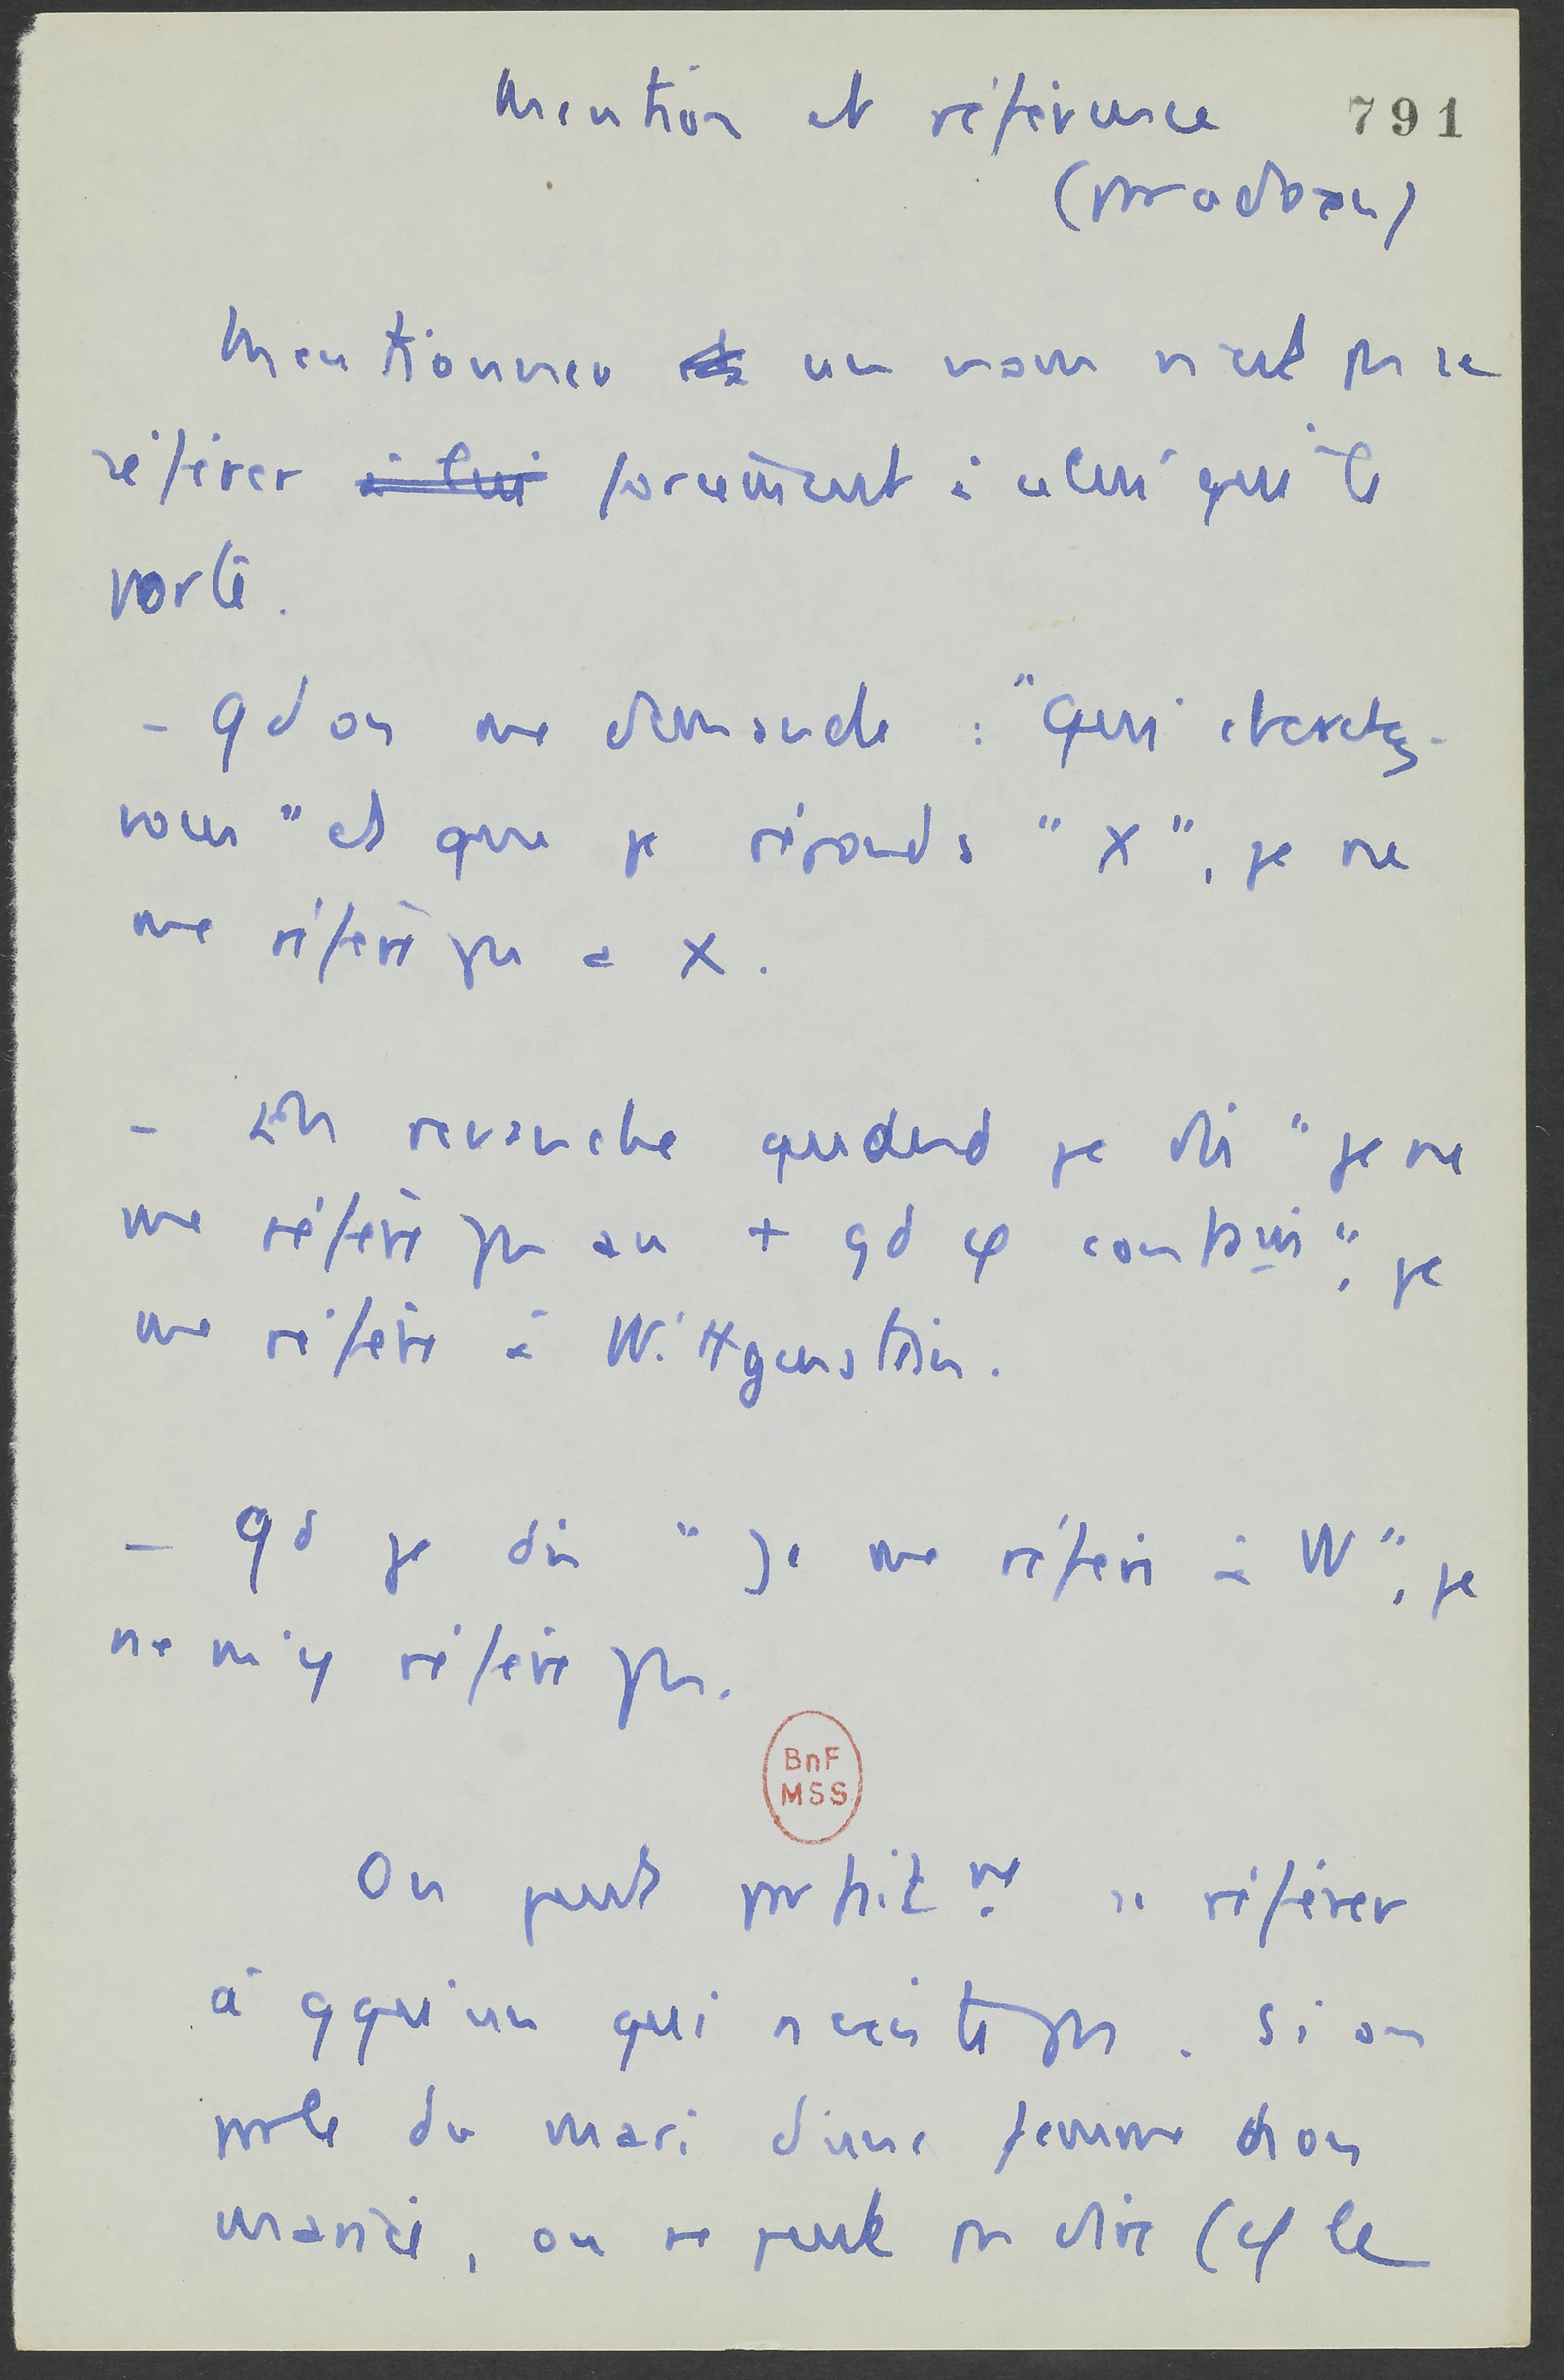 Mention et référence 791
(Strawson)
Mentionner un nom n'est pas se
référer à lui forcément à celui qui le
porte.
- Qd on me demande : "Qui cherchez-
vous" et que je réponds "X", je ne
me réfère pas à X.
- En revanche quand je dis "je ne
me réfère pas au + gd φ contemp", je
me réfère à Wittgenstein.
- Qd je dis "Je me réfère à W", je
ne m'y réfère pas.
BnF
MSS
On peut parfait se référer
à qqu'un qui n'existe pas. Si on
parle du mari d'une femme non
mariée, on ne peut pas dire (cf le